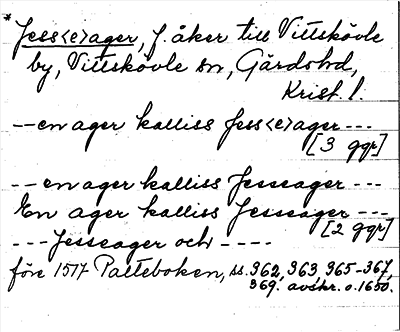 *Jess<e>ager, f. åker till Vittskövle
by, Vittskövle sn, Gärds hd,
Krist. l.
-- en ager kalliss Jess<e>ager ---
[3 ggr]
-- en ager kalliss Jesseager ---
En ager kalliss Jesseager ---
[2 ggr]
--- Jesseager och ----
före 1517 Palteboken, ss. 362, 363, 365-367,
369. avskr. o. 1650.